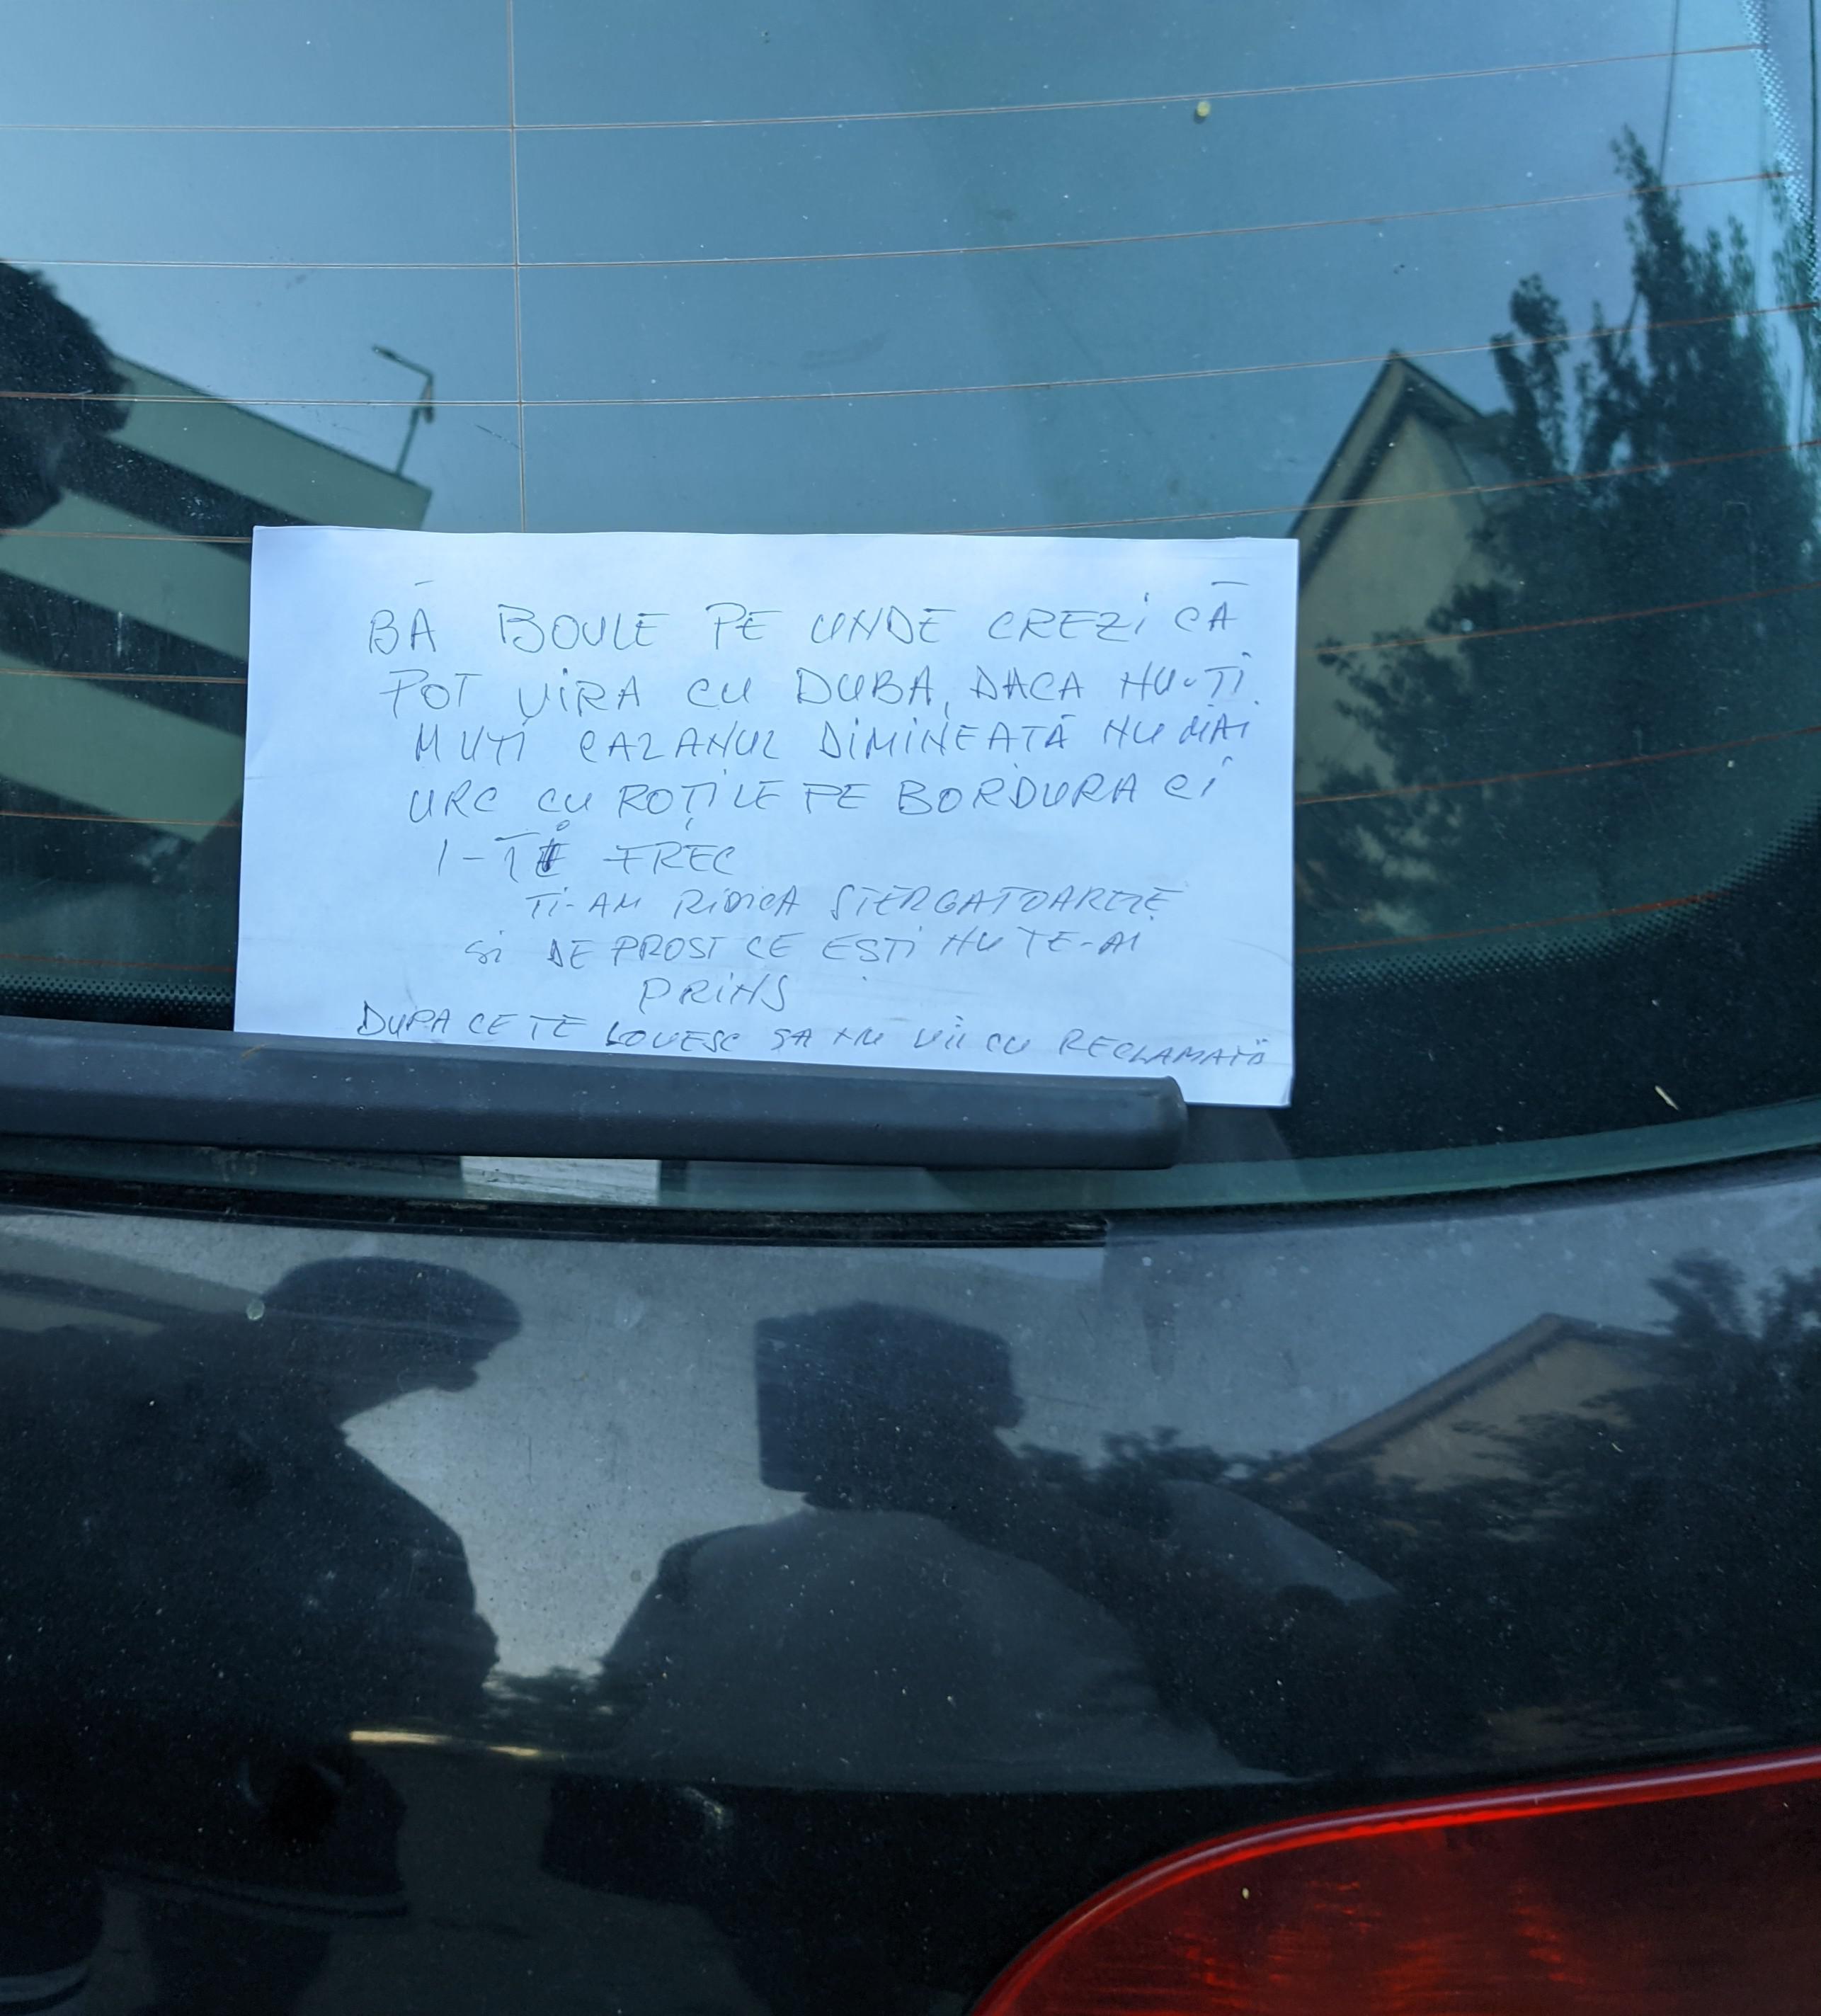 BĂ BOULE PE UNDE CREZI CĂ
POT VIRA CU DUBA, DACA NU-ȚI
MUȚI CAZANUL DIMINEAȚĂ NU MAI
URC CU ROȚILE PE BORDURA CI
FREC
TI-AM RIDICA ȘTERGATOARELE
SI DE PROST CE EȘTI NU TE-AI
PRINS
DUPA CE TE LOVESC SA NU VII CU RECLAMATII